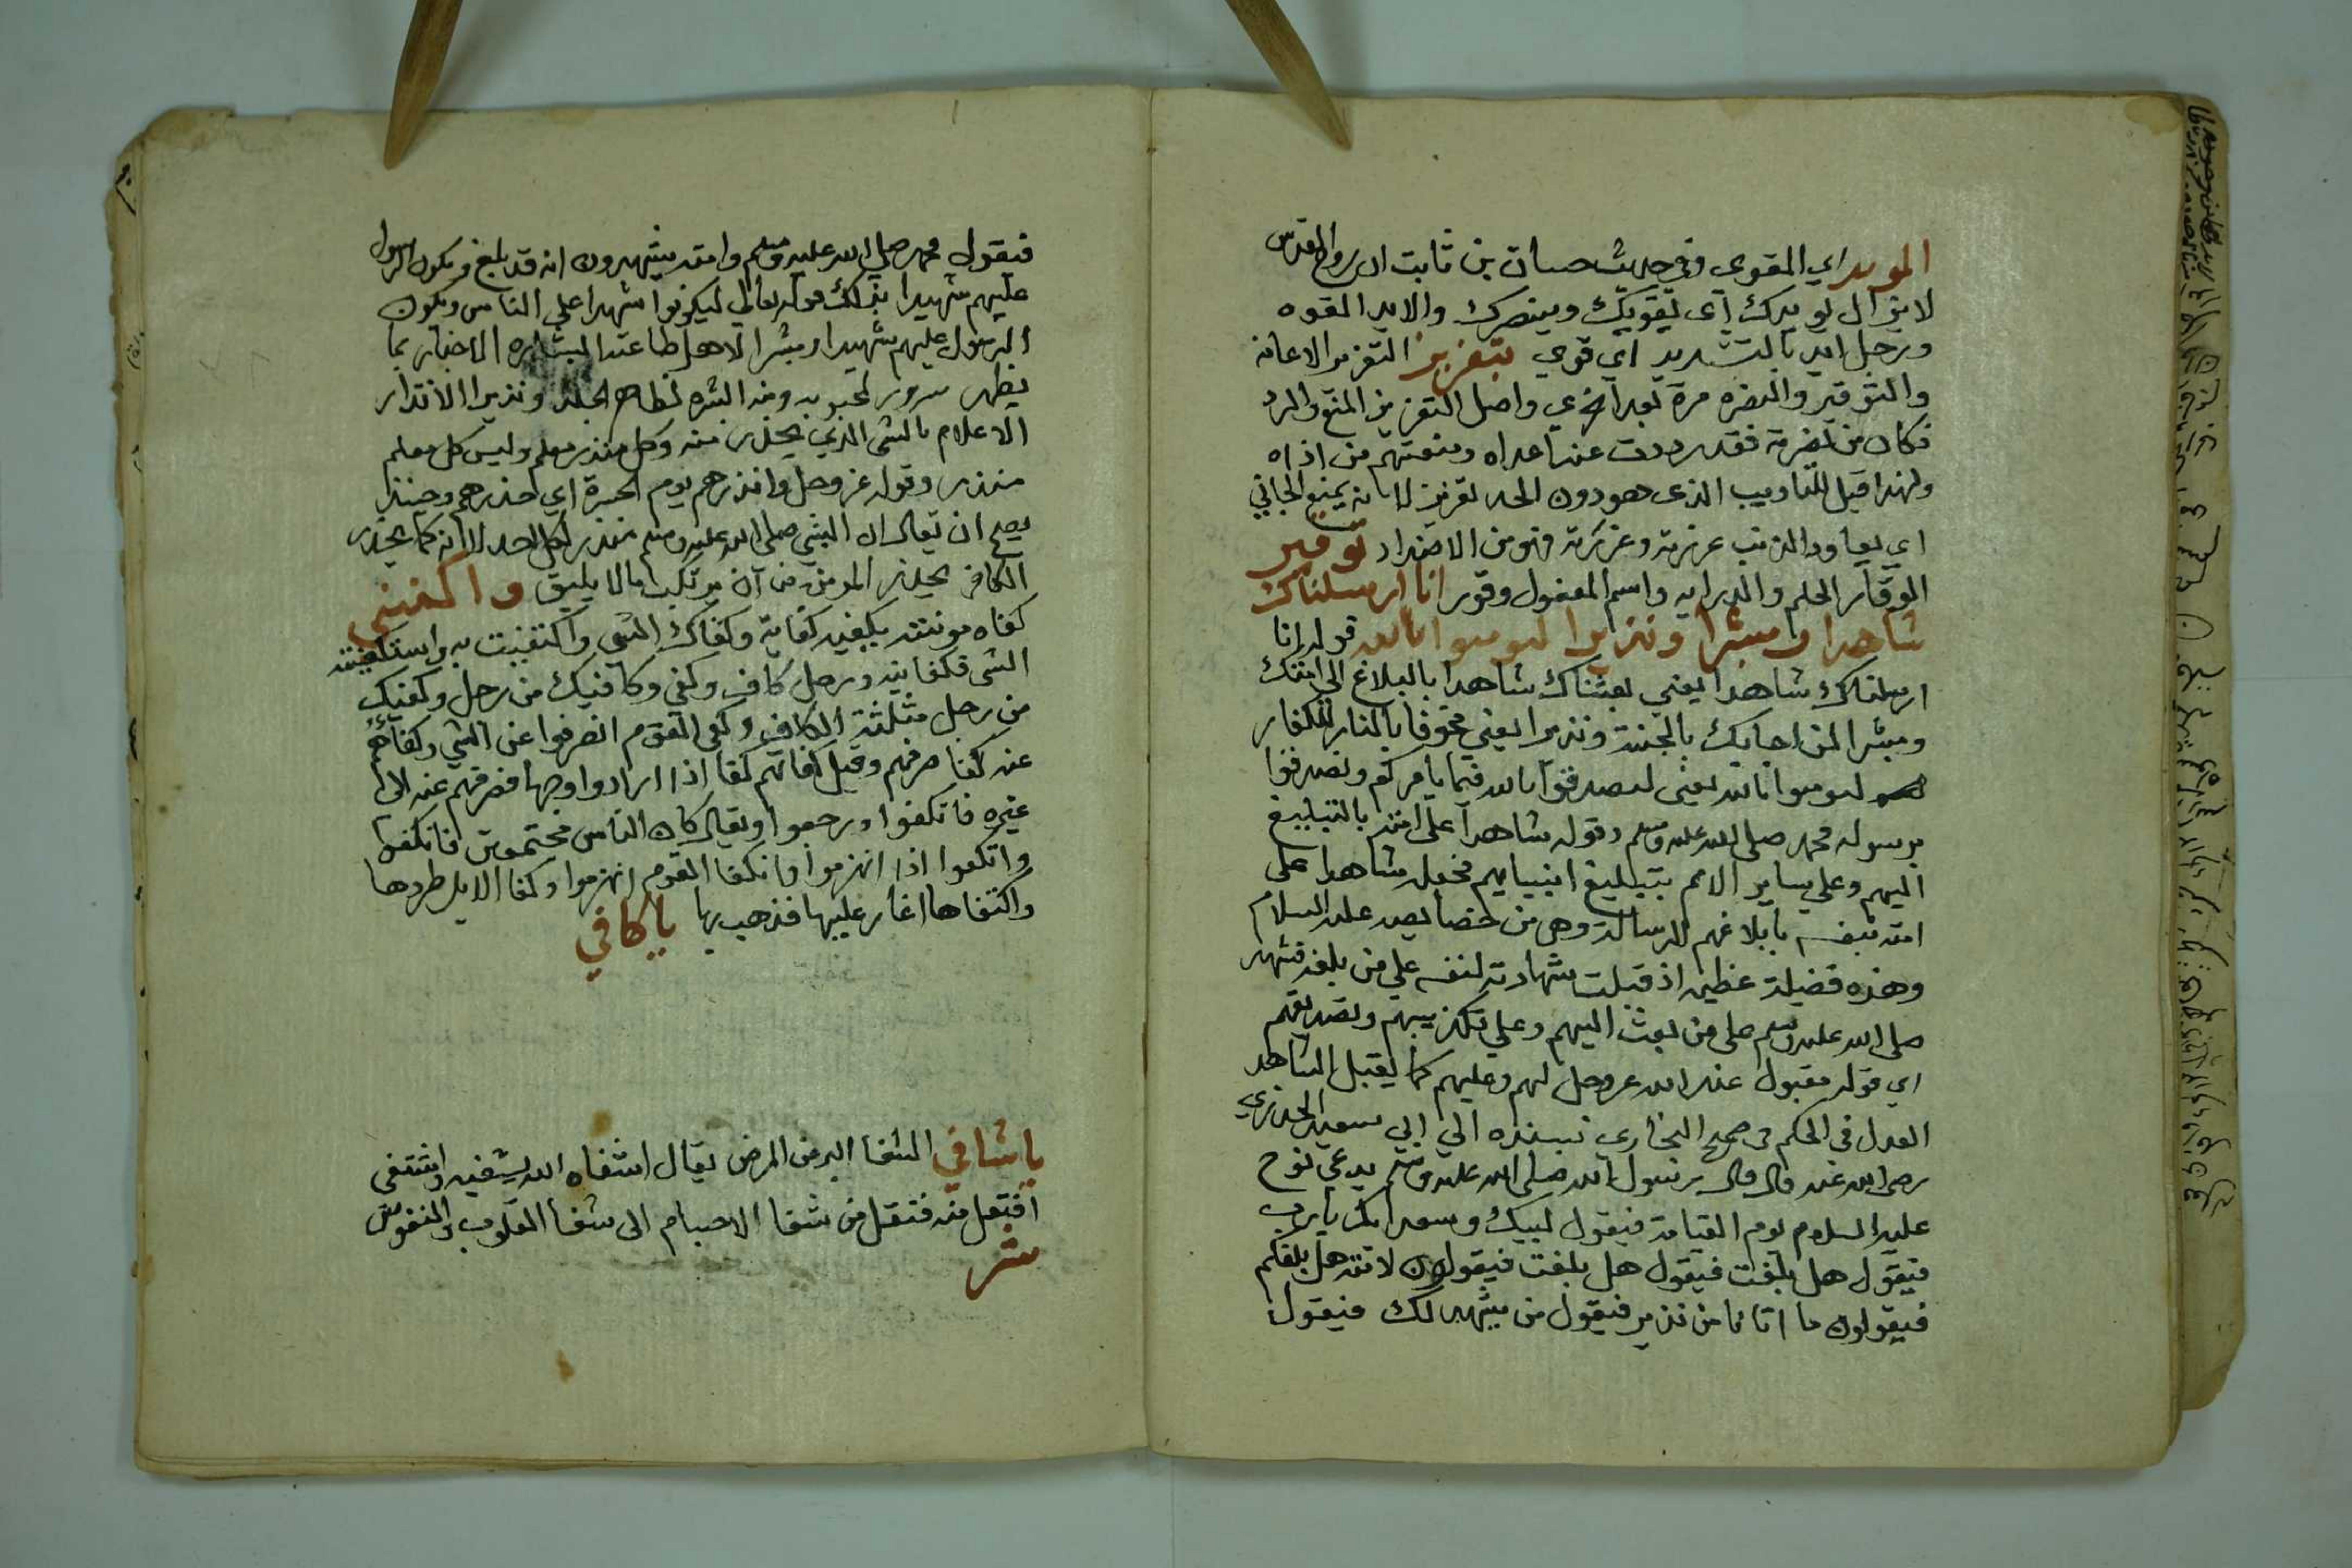 المويد اي المقوي وفي حديث حسان بن ثابت ان روح القدس
لا يزال يويدك اي يقويك وينصرك والايد القوه
ورجل ايد بالتشديد اي قوي بتعزيز التعزير الاعانه
والتوقير والنصره مرة بعد اخري واصل التعزير المنع والرد
فكان من نصرته فقد رددت عنه اعداه ومنعتهم من اذاه
ولهذا قيل للتاديب الذي هو دون الحد تعزير لانه يمنع الجاني
اي يعاود الذنب عزرته وعزرته فهو من الاضداد توقير
الوقار الحلم والرزانه واسم المفعول وقور انا ارسلناك
شاهدا ومبشرا ونذيرا لتومنوا بالله قوله انا
ارسلناك شاهدا يعني بعثناك شاهدا بالبلاغ الي امتك
ومبشرا لمن اجابك بالجنة ونذيرا يعني مخوفا بالنار للكفار
لتومنوا بالله يعني لتصدقوا بالله فيما يامركم وتصدقوا
برسوله محمد صلي الله عليه وسلم وقوله شاهدا علي امته بالتبليغ
اليهم وعلي ساير الامم بتبليغ انبيايهم فجعله شاهدا علي
امته بنفسه بابلاغهم الرسالة وهي من خصايصه عليه السلام
وهذه فضيلة عظيمه اذ قبلت شهادته لنفسه علي من بلغه فشهد
صلي الله عليه وسلم علي من بعث اليهم وعلي تكذيبهم وتصديقهم
اي قوله مقبول عند الله عز وجل لهم وعليهم كما يقبل الشاهد
العدل في الحكم في صحيح البخاري بسنده الي ابي سعيد الخدري
رضي الله عنه قال قال رسول الله صلي الله عليه وسلم يدعي نوح
عليه السلام يوم القيامة فيقول لبيك وسعديك يارب
فيقول هل بلغت فيقول هل بلغت فيقولون لامته هل بلغكم
فيقولون ما اتانا من نذير فيقول من يشهد لك فيقول
فيقول محمد صلي الله عليه وسلم وامته فيشهدون انه قد بلغ ويكون الرسول
عليهم شهيدا فذلك قوله تعالي ليكونوا شهدا علي الناس ويكون
الرسول عليهم شهيدا ومبشرا لاهل طاعته البشاره الاخبار بما
يظهر سرور لمحبوبه ومنه البشره لظاهر الجلد ونذيرا الانذار
الاعلام بالشي الذي يحذر منه وكل منذر معلم وليس كل معلم
منذر وقوله عز وجل وانذرهم يوم الحسرة اي احذرهم وحينئذ
يصح ان يقال ان النبي صلي الله عليه وسلم منذر لكل احد لانه كما يحذر
الكافر يحذر المومن من ان يرتكب ما لا يليق واكفني
كفاه مونته يكفيه كفاية وكفاك الشي واكتفيت به واستكفيته
الشي فكفانيه ورجل كاف وكفي وكافيك من رجل وكفيك
من رجل مثلثة الكاف وكفي القوم انصرفوا عن الشي وكفاهم
عنه كفا صرفهم وقيل كفاتهم كفا اذا ارادوا وجها فصرفهم عنه الي
غيره فانكفوا ورجعوا ويقال كان الناس مجتمعين فانكفوا
وانكفوا اذا انهزموا وانكفا القوم انهزموا وكفا الابل طردها
واكتفاها اغار عليها فذهب بها ياكافي
ياشافي الشفا البر من المرض يقال اشفاه الله يشفيه واشتفي
افتعل منه فنقل من شفا الاجسام الي شفا القلوب والنفوس